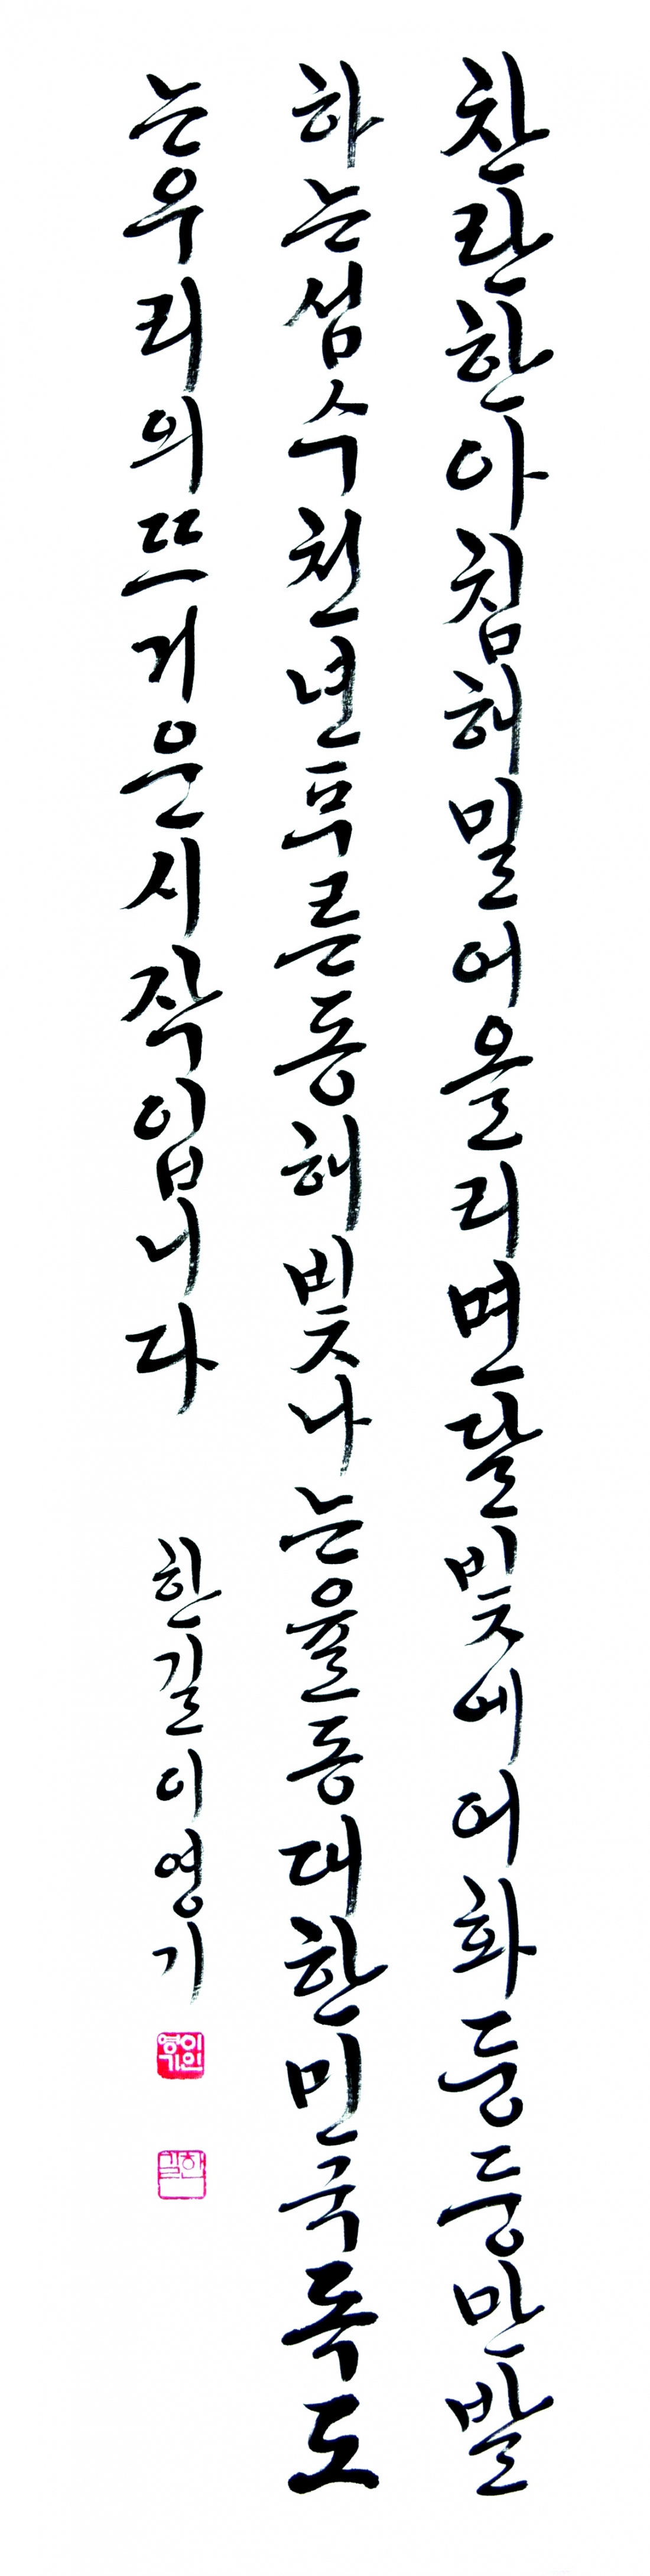 찬란한아침해밀어올리면달빛에어화둥둥만발
하는섬수천년푸른동해빛나는율동대한민국독도
는우리의뜨거운시작입니다
한길이영기
이인영기
한길